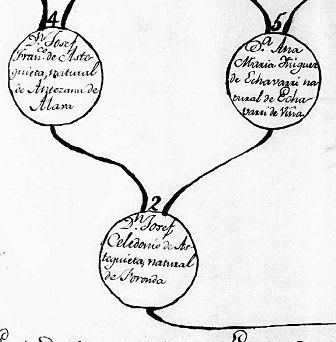 4
Dn. Josef
Franco. de Aste-
guieta, natural
de Antezana de
Alava
5
Da. Ana
Maria Iñiguez
de Echavarri na-
tural de Echa-
varri de Viña
2
Dn. Josef
Celedonio de As-
teguieta, natural
de Foronda